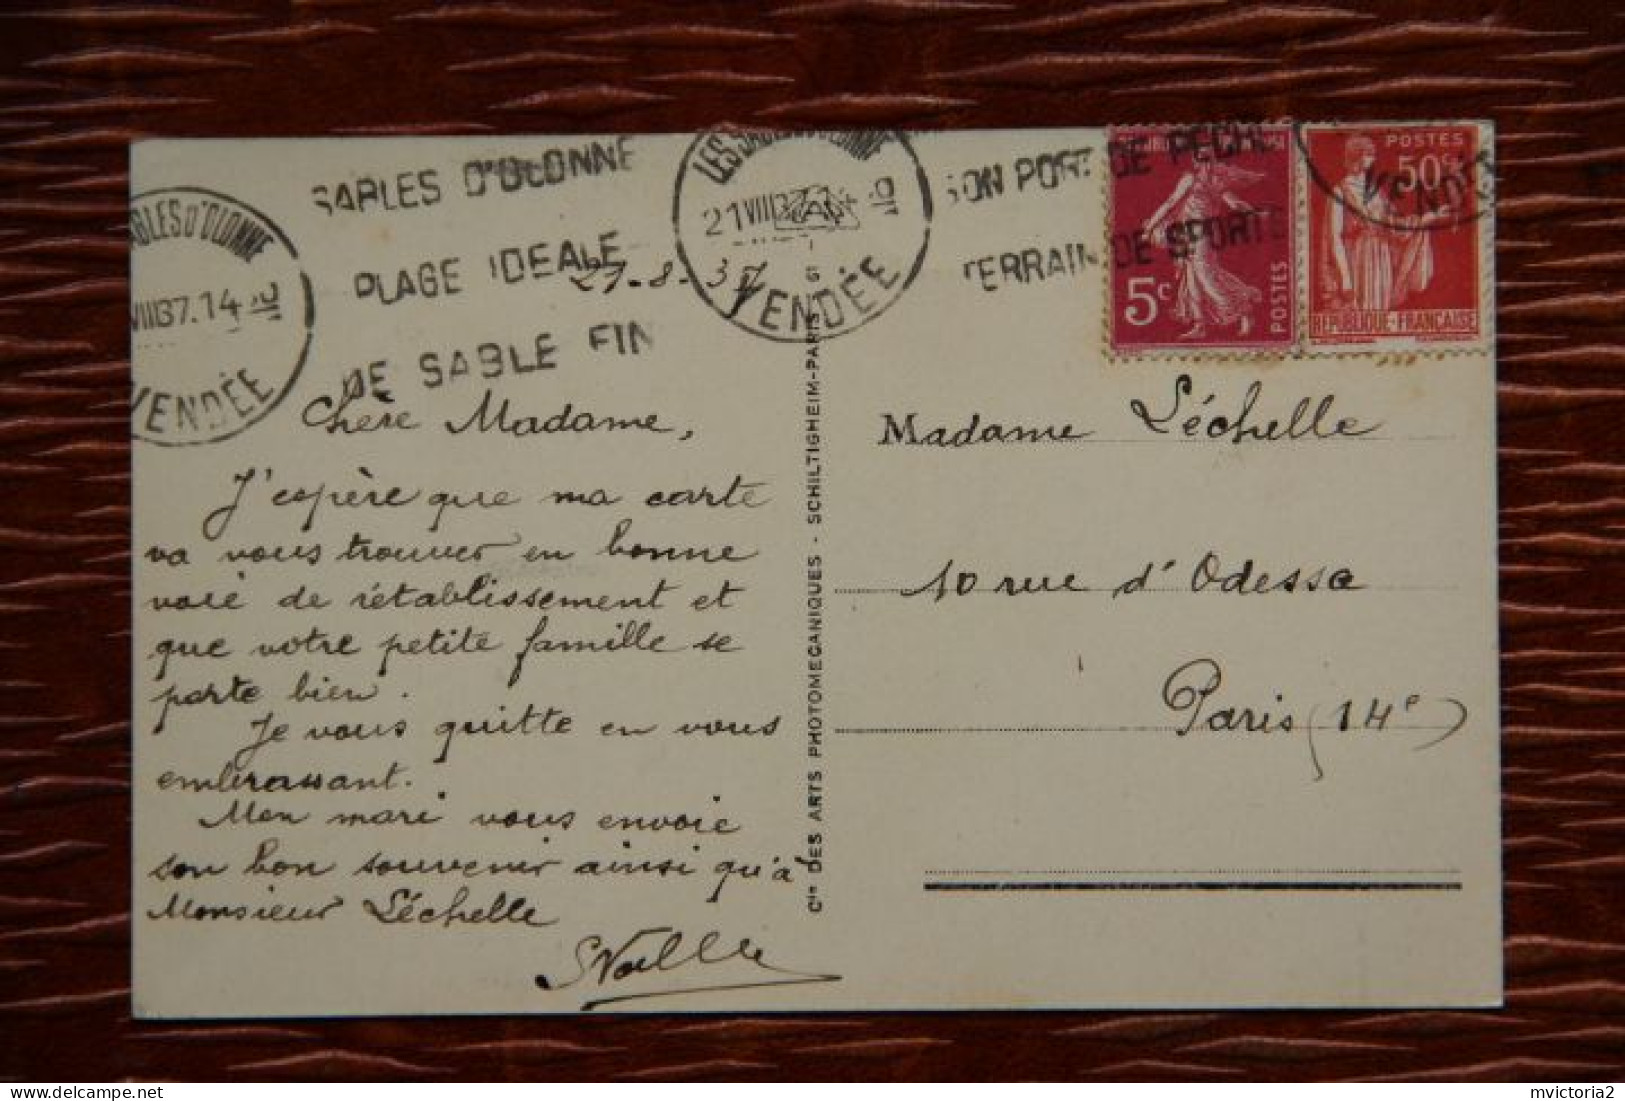 SABLES D'OLONNE
PLAGE IDEALE
DE SABLE FIN
SABLES D'OLONNE
VIII37.14
VENDÉE
LES SABLES D'OLONNE
21 VIII 37
VENDÉE
SON PORT DE PECHE
TERRAIN DE SPORTS
VENDÉE
5c
POSTES
POSTES
50c
REPUBLIQUE-FRANÇAISE
21-8-37
Chère Madame,
J'espère que ma carte
va vous trouver en bonne
voie de rétablissement et
que votre petite famille se
porte bien.
Je vous quitte en vous
embrassant.
Mon mari vous envoie
son bon souvenir ainsi qu'à
Monsieur Léchelle
Cie DES ARTS PHOTOMECANIQUES - SCHILTIGHEIM-PARIS
Madame Léchelle
10 rue d'Odessa
Paris (14e)
mvictoria2